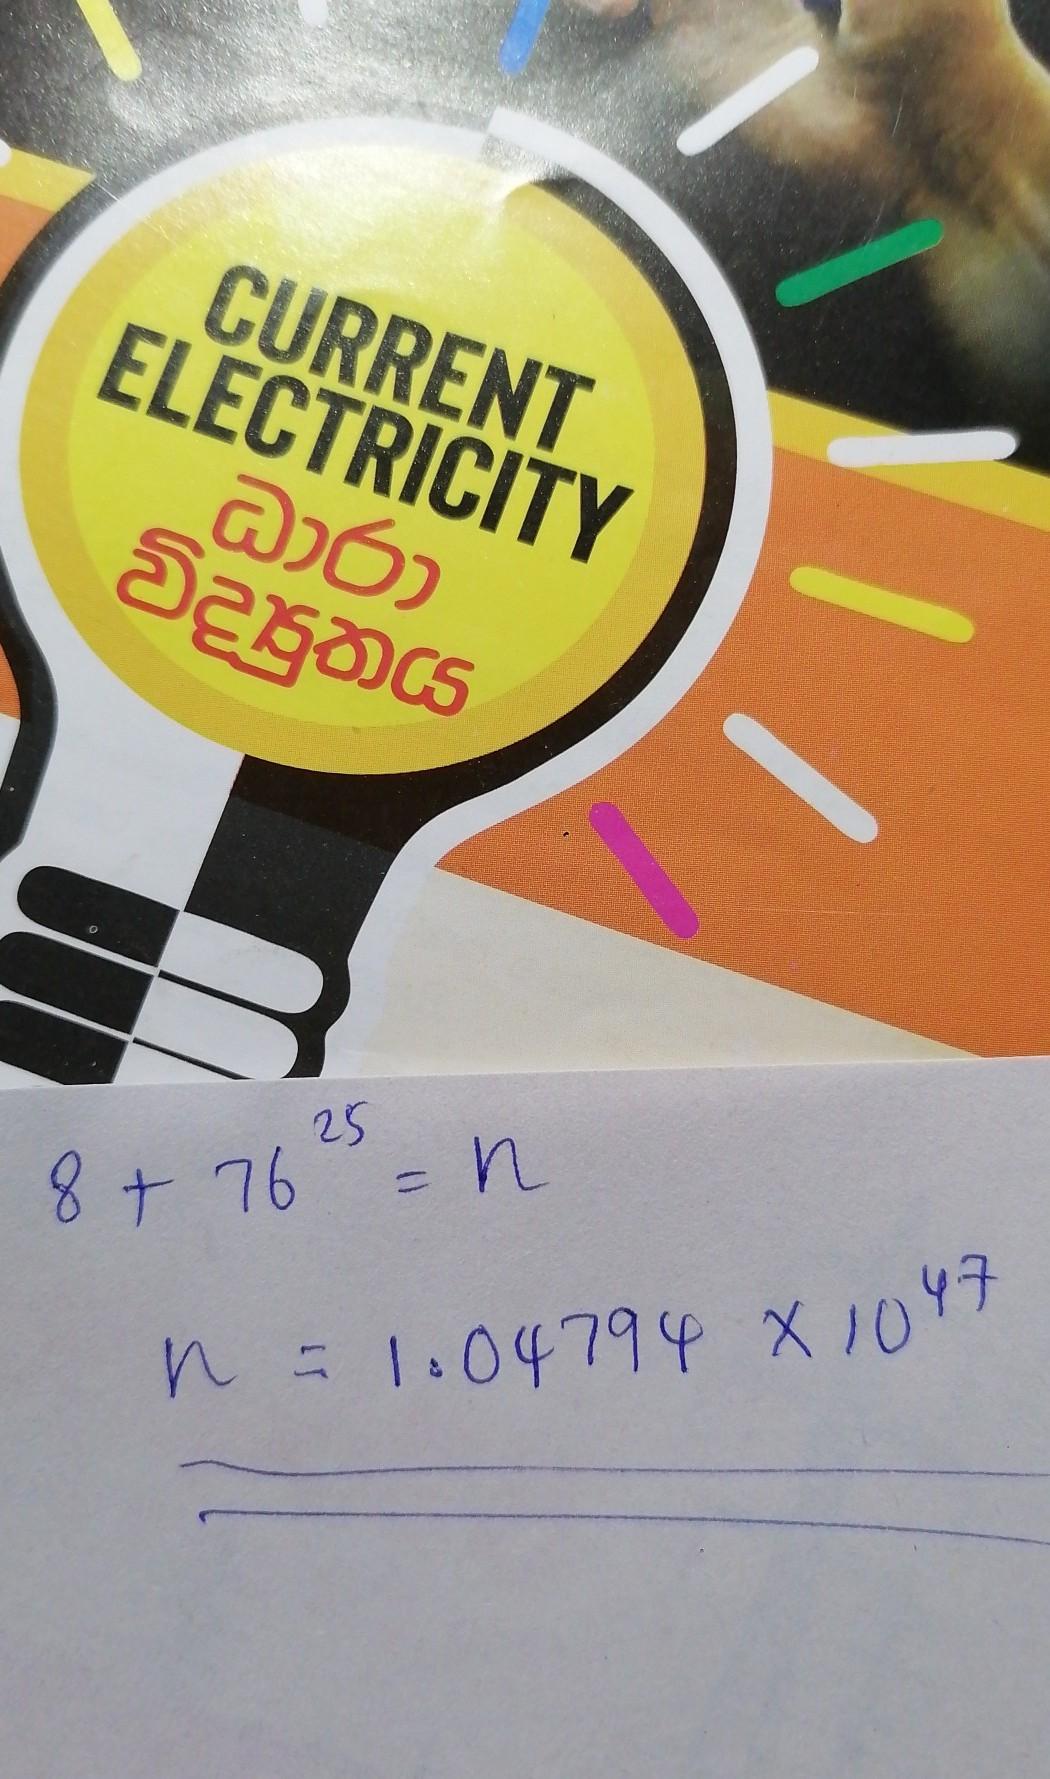 CURRENT
ELECTRICITY
ධාරා
විද්‍යුතය
8 + 76²⁵ = n
n = 1.04794 × 10⁴⁷